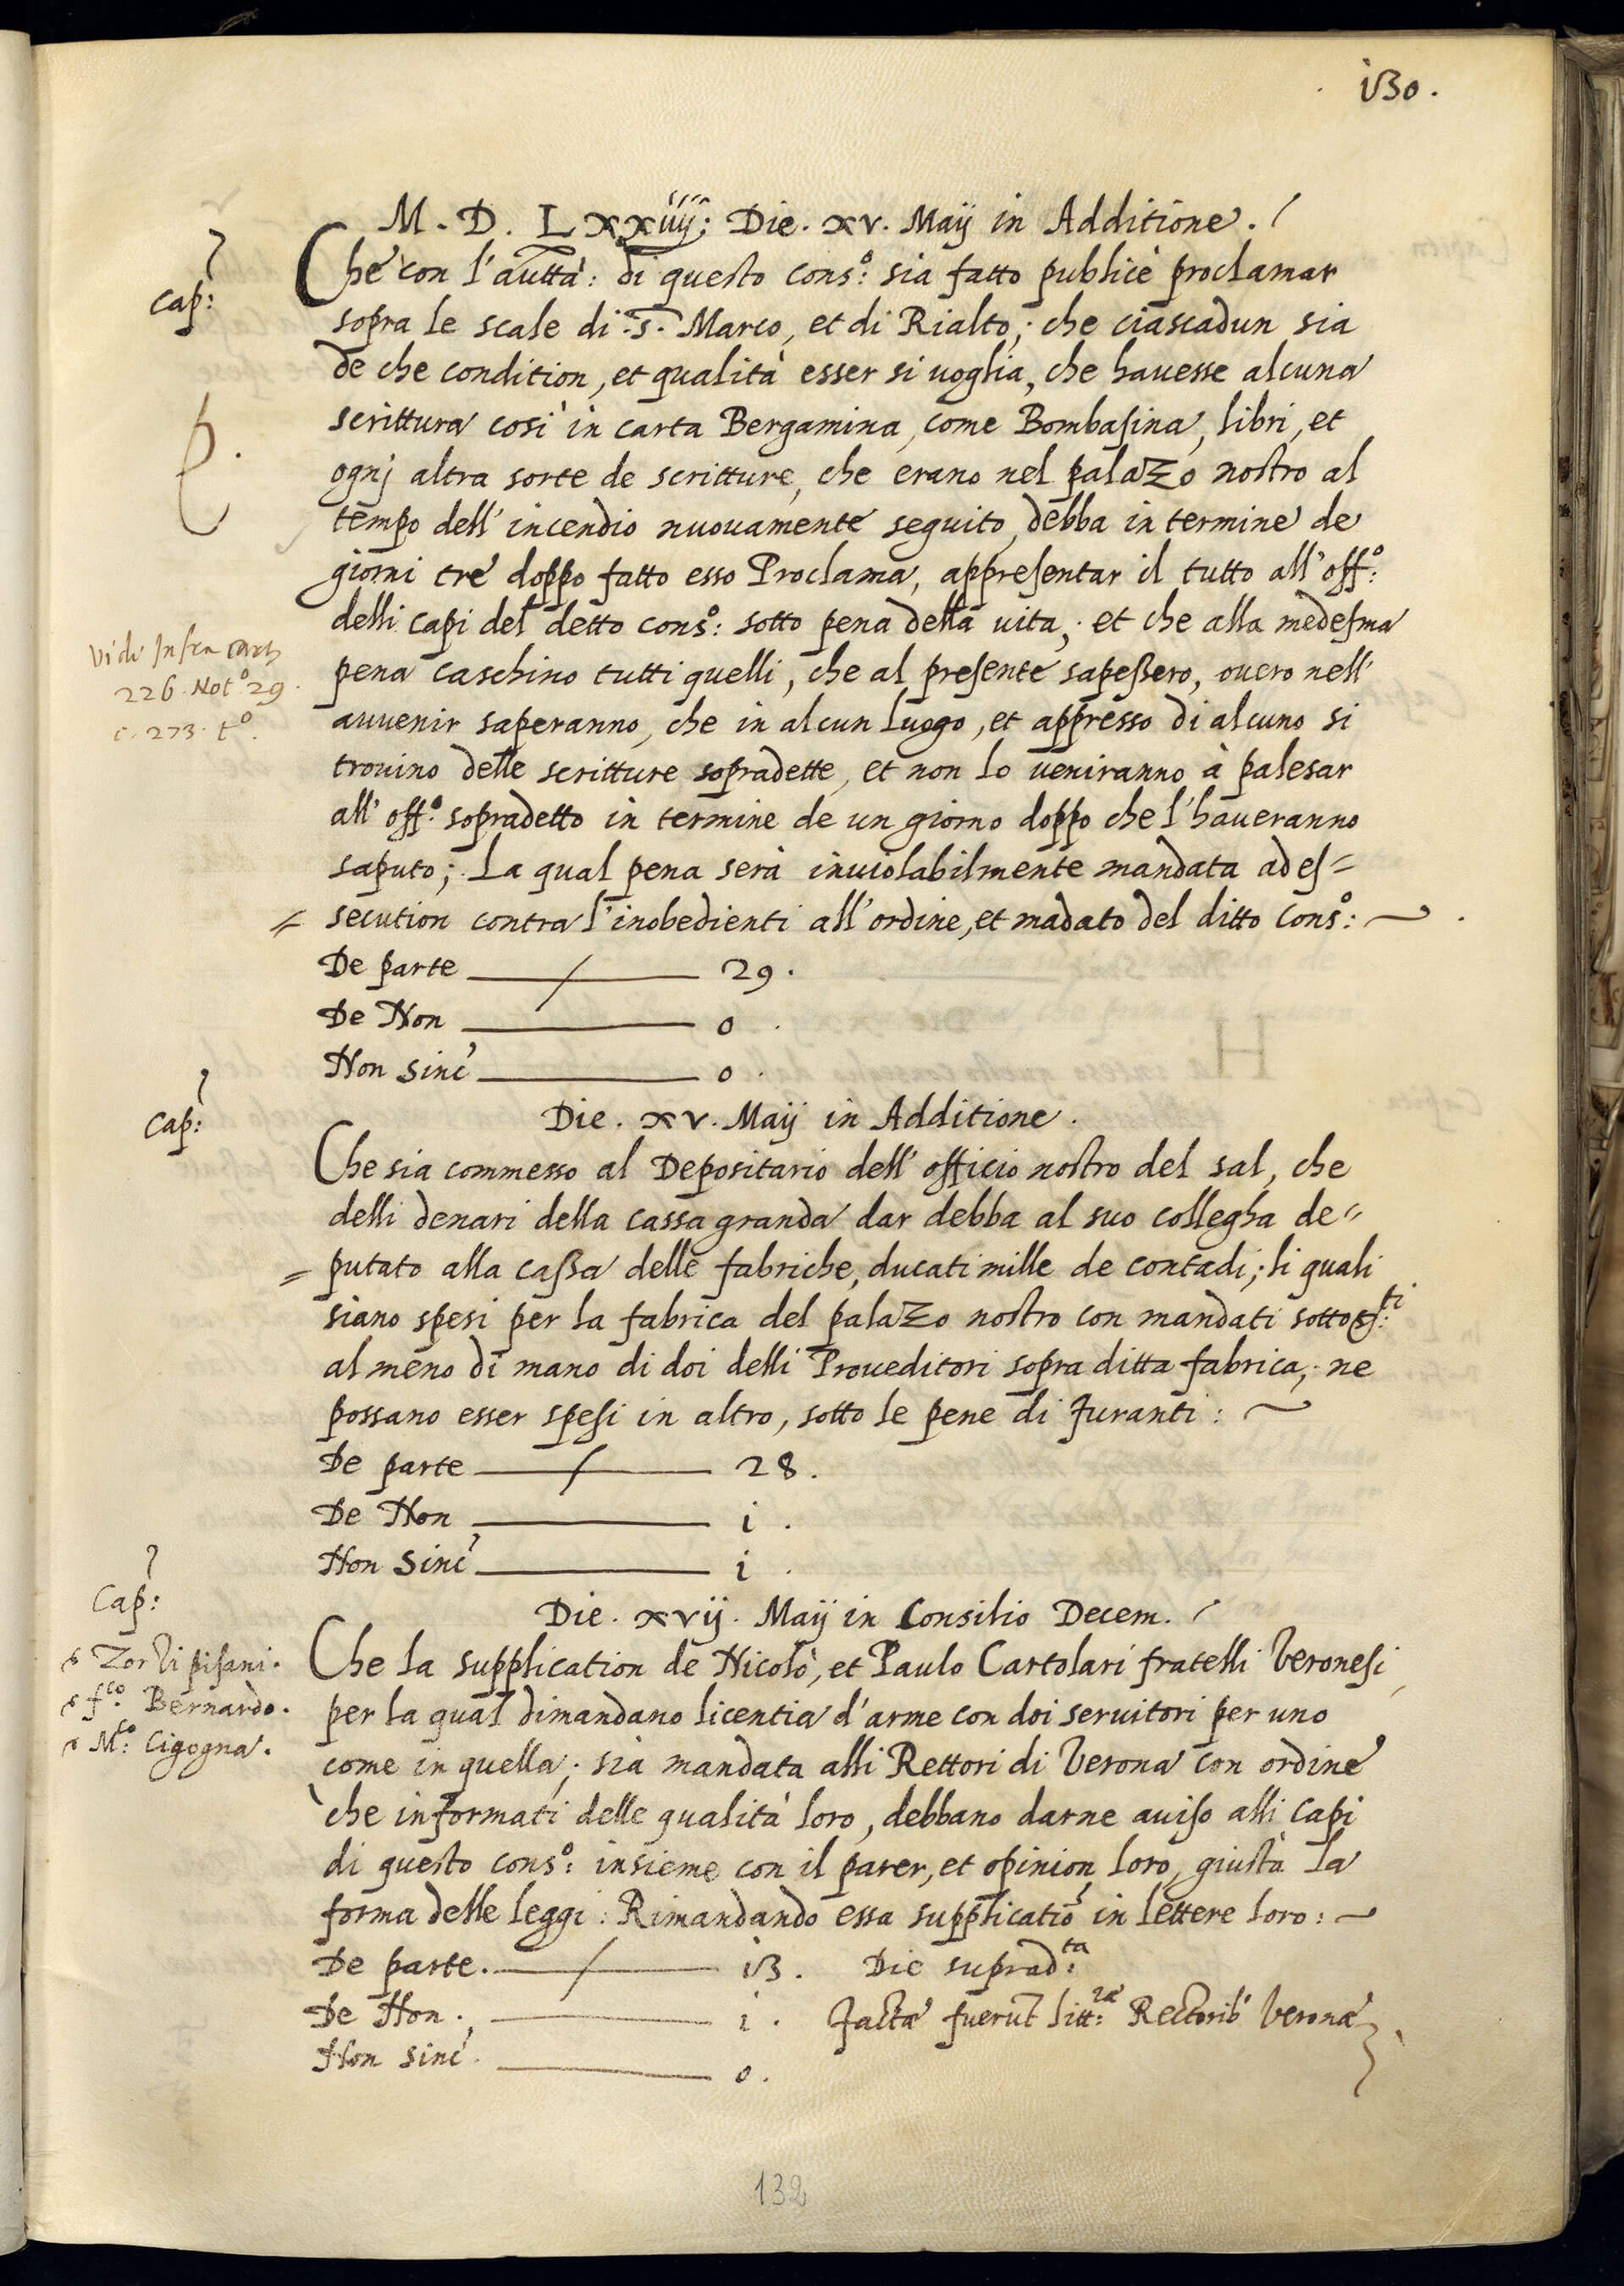 130.
M. D. Lxxiiij; Die. xv. Maij in Additione.
Cap:
Che con l'autta: di questo cons.o: sia fatto publicè proclamar
sopra le scale di .S. Marco, et di Rialto; che ciascadun sia
de che condition, et qualità esser si uoglia, che hauesse alcuna
scrittura così in carta Bergamina, come Bombasina, libri, et
ognj altra sorte de scritture, che erano nel palazo nostro al
tempo dell'incendio nuouamente seguito, debba in termine de
giorni tre doppo fatto esso Proclama, appresentar il tutto all'off.o:
delli capi del detto cons.o: sotto pena della uita; et che alla medesma
Vide Infra cart
226. Not.o 29.
c. 273. t.o
pena caschino tutti quelli, che al presente sapessero, ouero nell'
auuenir saperanno, che in alcun luogo, et appresso di alcuno si
trouino delle scritture sopradette, et non lo ueniranno à palesar
all'off.o: sopradetto in termine de un giorno doppo che l'haueranno
saputo; La qual pena serà inuiolabilmente mandata ad es=
= secution contra l'inobedienti all'ordine, et madato del ditto Cons.o:
De parte 29.
De Non 0.
Non sinc 0.
Die. xv. Maij in Additione.
Cap:
Che sia commesso al Depositario dell'officio nostro del sal, che
delli denari della cassa granda dar debba al suo collegha de=
= putato alla cassa delle fabriche, ducati mille de contadi; li quali
siano spesi per la fabrica del palazo nostro con mandati sottos:ti
al meno di mano di doi delli Proueditori sopra ditta fabrica; ne
possano esser spesi in altro, sotto le pene di furanti:
De parte 28.
De Non i.
Non Sinc i.
Die. xvij. Maij in Consilio Decem.
Cap:
s Zor Di pisani.
s f.co: Bernardo.
s M.co: Cigogna.
Che la supplication de Nicolò, et Paulo Cartolari fratelli Veronesi,
per la qual dimandano licentia d'arme con doi seruitori per uno
come in quella; sia mandata alli Rettori di Verona con ordine
che informati delle qualità loro, debbano darne auiso alli Capi
di questo cons.o: insieme con il parer, et opinion loro, giusta la
forma delle leggi: Rimandando essa supplicatio in lettere loro:
De parte. 13. Die suprad:ta
De Non. i. factæ fuerut litt:ræ Rectorib' Veronæ
Non sinc. 0.
132